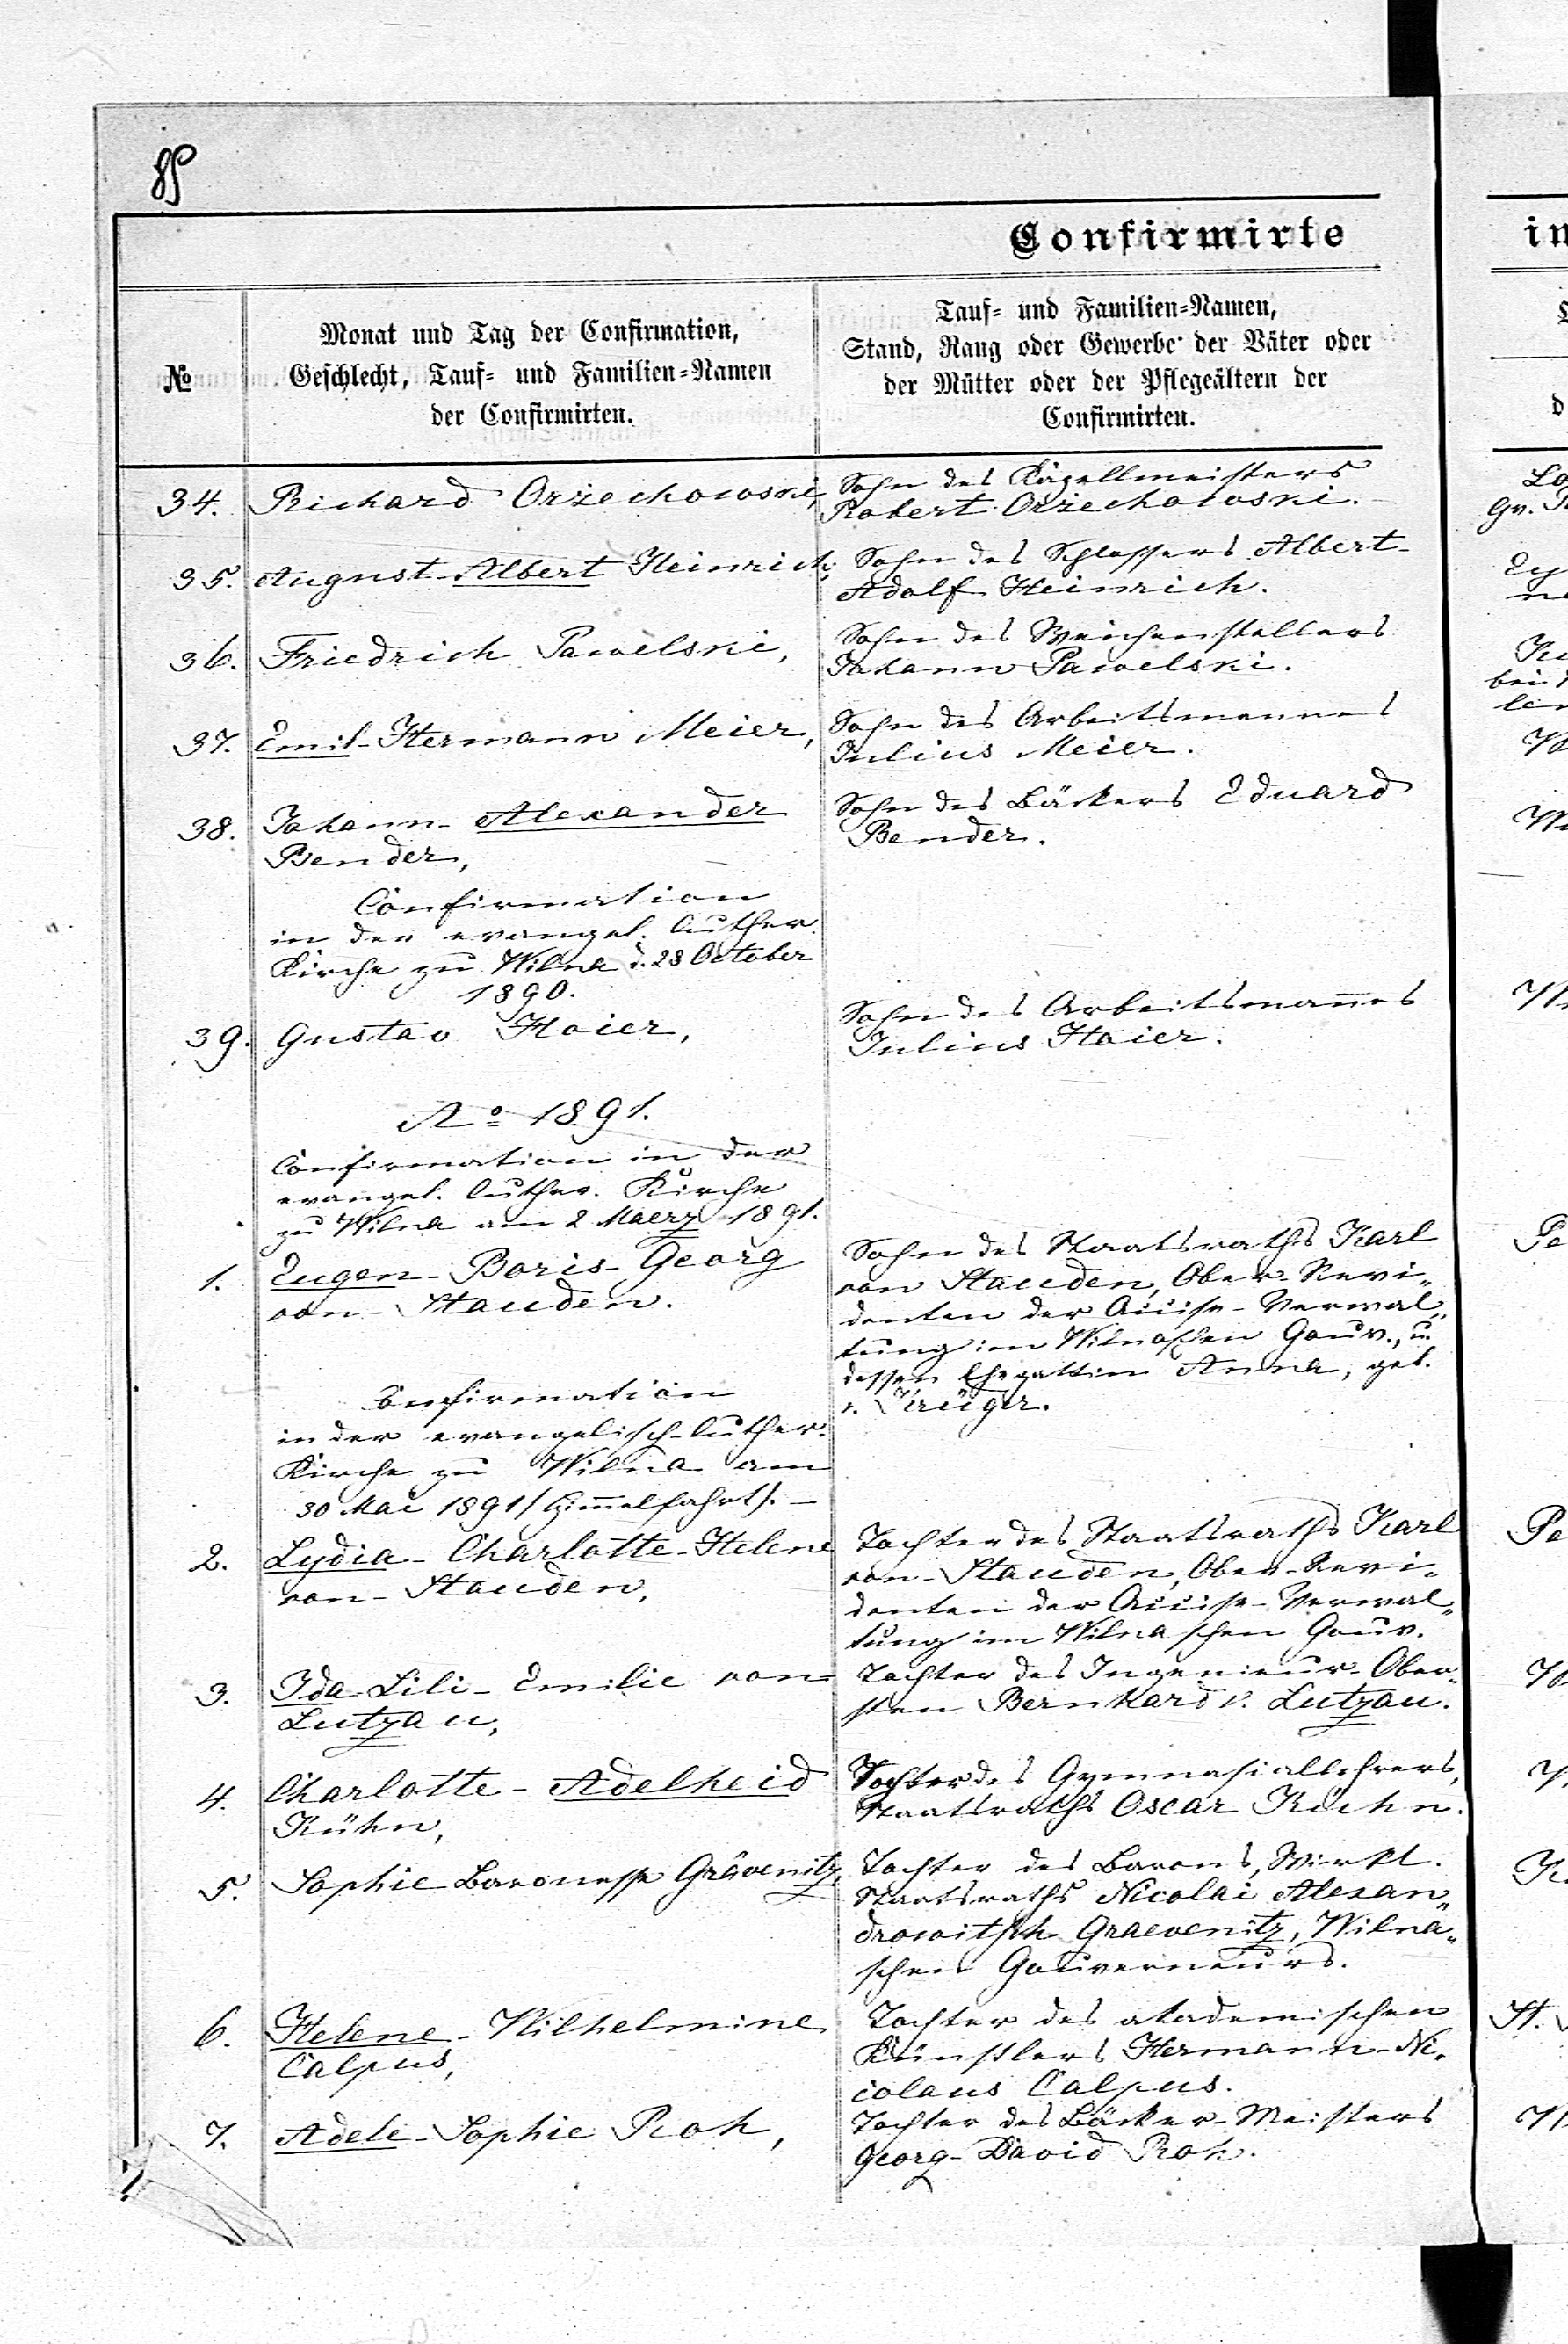 85
Confirmirte
No
Monat und Tag der Confirmation,
Geschlecht, Tauf- und Familien-Namen
der Confirmirten.
Tauf- und Familien-Namen,
Stand, Rang oder Gewerbe der Väter oder
der Mütter oder der Pflegeältern der
Confirmirten.
34. Richard Orzechowski,
Sohn des Kapellmeisters
Robert Orzechowski.
35. August-Albert Heinrich,
Sohn des Schlossers Albert-
Adolf Heinrich.
36. Friedrich Pawelski,
Sohn des Weichenstellers
Johann Pawelski.
37. Emil-Hermann Meier,
Sohn des Arbeitsmannes
Julius Meier.
38. Johann-Alexander
Bender,
Sohn des Bäckers Eduard
Bender.
Confirmation
in der evangel. luther.
Kirche zu Wilna d. 28 October
1890.
39. Gustav Hoier,
Sohn des Arbeitsmannes
Julius Hoier.
Ao 1891.
Confirmation in der
evangel. luther. Kirche
zu Wilna am 2 Maerz 1891.
1. Eugen-Boris-Georg
von-Stauden.
Sohn des Staatsraths Karl
von Stauden, Ober-Revi-
denten der Accise-Verwal-
tung im Wilnaschen Gouv., u.
dessen Ehegattin Anna, geb.
v. Krüger.
Confirmation
in der evangelisch-luther.
Kirche zu Wilna am
30 Mai 1891 (Himmelfahrt). —
2. Lydia-Charlotte-Helene
von-Stauden,
Tochter des Staatsraths Karl
von-Stauden, Ober-Revi-
denten der Accise-Verwal-
tung im Wilnaschen Gouv.
3. Ida-Lili-Emilie von-
Lutzau,
Tochter des Ingenieur-Ober-
sten Bernhard v. Lutzau.
4. Charlotte-Adelheid
Kühn,
Tochter des Gymnasiallehrers,
Staatsraths Oscar Kühn.
5. Sophie Baronesse Grävenitz,
Tochter des Barons, Wirkl.
Staatsraths Nicolai Alexan-
drowitsch Graevenitz, Wilna-
schen Gouverneurs.
6. Helene-Wilhelmine
Calpus,
Tochter des akademischen
Künstlers Hermann-Ni-
colaus Calpus.
7. Adele-Sophie Roh,
Tochter des Bäcker-Meisters
Georg-David Roh.